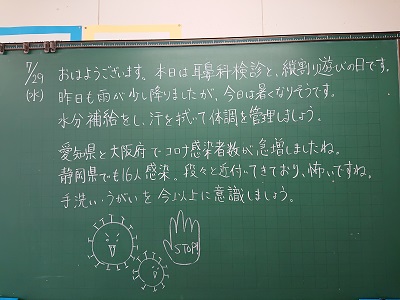 7/29
(水)
おはようございます。本日は耳鼻科検診と、縦割り遊びの日です。
昨日も雨が少し降りましたが、今日は暑くなりそうです。
水分補給をし、汗を拭って体調を管理しましょう。
愛知県と大阪府でコロナ感染者数が急増しましたね。
静岡県でも16人感染。段々と近付いてきており、怖いですね。
手洗い・うがいを今以上に意識しましょう。
STOP!